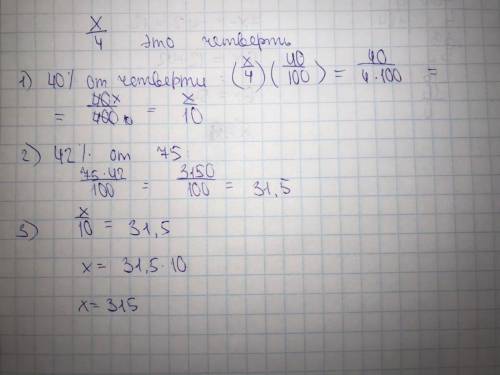 x/4 это четверть
1) 40% от четверти (x/4)(40/100) = 40/4·100 =
= 40x/400 = x/10
2) 42% от 75
75·42/100 = 3150/100 = 31,5
3) x/10 = 31,5
x = 31,5·10
x = 315